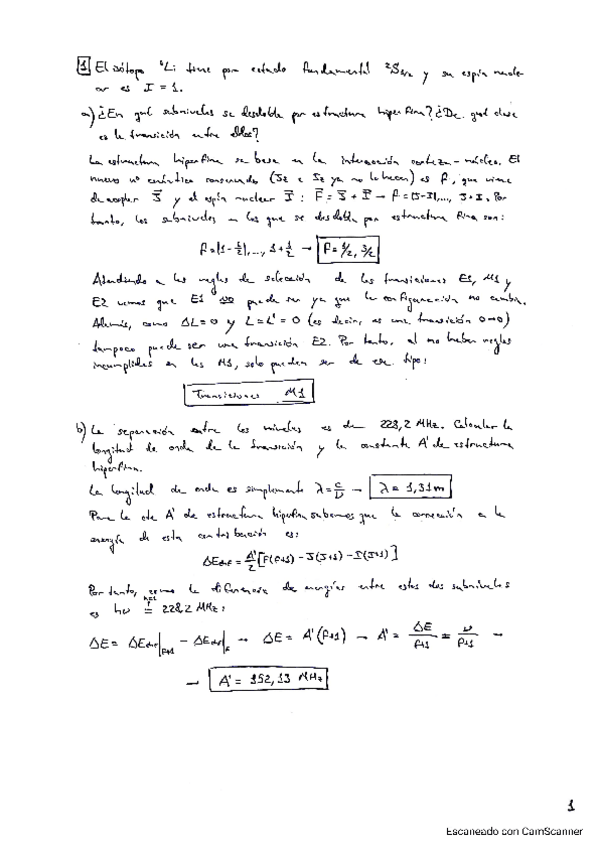 1 El isótopo ⁶Li tiene por estado fundamental ²S₁/₂ y su espín nucle-
ar es I = 1.
a) ¿En qué subniveles se desdobla por estructura hiperfina? ¿De qué clase
es la transición entre ellos?
La estructura hiperfina se basa en la interacción corteza-núcleo. El
nuevo nº cuántico conservado (Jz e Iz ya no lo hacen) es F, que viene
de acoplar J y el espín nuclear I: F = J + I → F = |J-I|,..., J+I. Por
tanto, los subniveles en los que se desdobla por estructura fina son:
F = |1-1/2|,..., 1+1/2 → F = 1/2, 3/2
Atendiendo a las reglas de selección de las transiciones E1, M1 y
E2 vemos que E1 no puede ser ya que la configuración no cambia.
Además, como ΔL=0 y L=L'=0 (es decir, es una transición 0→0)
tampoco puede ser una transición E2. Por tanto, al no haber reglas
incumplidas en las M1, solo pueden ser de ese tipo:
Transiciones M1
b) La separación entre los niveles es de 228,2 MHz. Calcular la
longitud de onda de la transición y la constante A' de estructura
hiperfina.
La longitud de onda es simplemente λ = c/ν → λ = 1,31m
Para la cte A' de estructura hiperfina sabemos que la corrección a la
energía de esta contribución es:
ΔE = A'/2 [F(F+1) - J(J+1) - I(I+1)]
Por tanto, como la diferencia de energías entre estos dos subniveles
es hν = 228,2 MHz:
ΔE = ΔE|F+1 - ΔE|F → ΔE = A'(F+1) → A' = ΔE/F+1 = ν/F+1 →
→ A' = 152,13 MHz
1
Escaneado con CamScanner